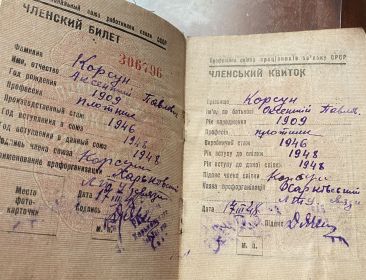 союз работников связи СССР
ЧЛЕНСКИЙ БИЛЕТ
306796
Фамилия Корсун
Имя, отчество
Год рождения 1909
Профессия плотник
Производственный стаж
Год вступления в союз 1946
Год вступления в данный союз 1948
членом союза Корсун
наименование профорганизации Харьковский
Место
фото-
карточки
Дата 17 III 48
м. п.
Професійна спілка працівників зв'язку СРСР
ЧЛЕНСЬКИЙ КВИТОК
Прізвище Корсун
Ім'я, по батькові
Рік народження 1909
Професія плотник
Виробничий стаж
Рік вступу до спілки 1946
Рік вступу до даної спілки 1948
Підпис члена спілки Корсун
Назва профорганізації Харьковский
Дата 17 III 48
Підпис
м. п.